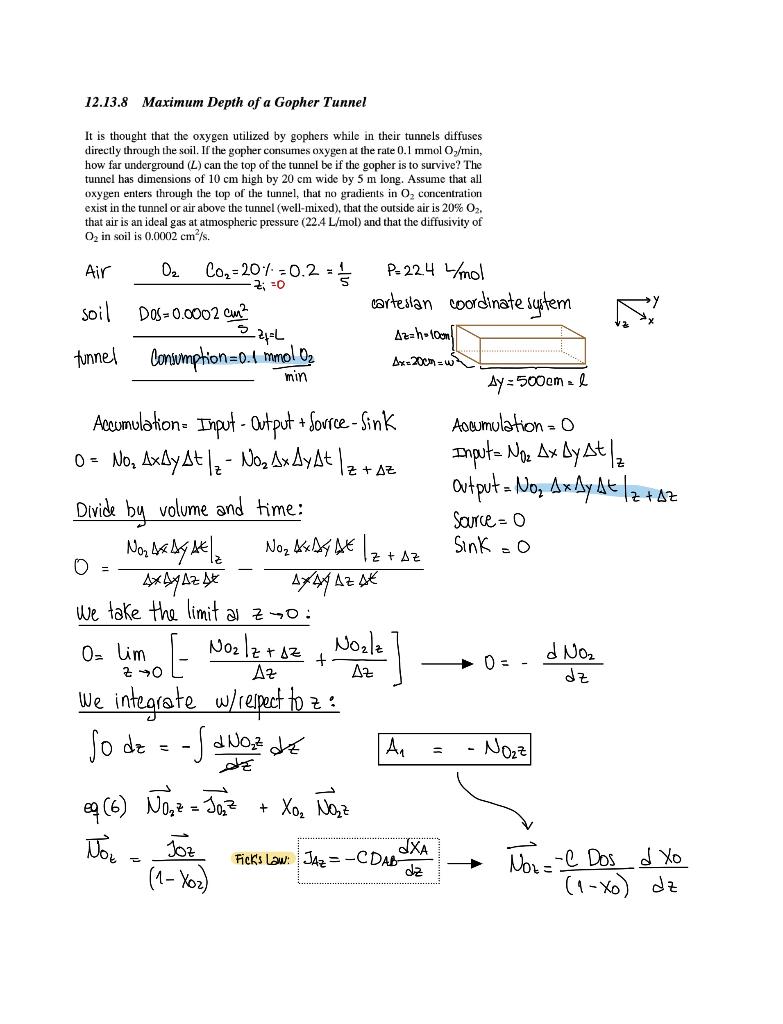 12.13.8 Maximum Depth of a Gopher Tunnel
It is thought that the oxygen utilized by gophers while in their tunnels diffuses
directly through the soil. If the gopher consumes oxygen at the rate 0.1 mmol O₂/min,
how far underground (L) can the top of the tunnel be if the gopher is to survive? The
tunnel has dimensions of 10 cm high by 20 cm wide by 5 m long. Assume that all
oxygen enters through the top of the tunnel, that no gradients in O₂ concentration
exist in the tunnel or air above the tunnel (well-mixed), that the outside air is 20% O₂,
that air is an ideal gas at atmospheric pressure (22.4 L/mol) and that the diffusivity of
O₂ in soil is 0.0002 cm²/s.
Air O₂ Co₂=20%=0.2=1/5 P=22.4 L/mol
zᵢ=0
soil Dos=0.0002 cm²/s
z_f=L
tunnel Consumption=0.1 mmol O₂/min
cartesian coordinate system
y
x
z
Δz=h=10cm
Δx=20cm=w
Δy=500cm=l
Accumulation= Input - Output + Source - Sink
0 = No₂ ΔxΔyΔt|z - No₂ ΔxΔyΔt|z+Δz
Accumulation = 0
Input= No₂ Δx ΔyΔt|z
Output = No₂ ΔxΔyΔt|z+Δz
Source = 0
Sink = 0
Divide by volume and time:
0 = No₂ΔxΔyΔt|z / ΔxΔyΔzΔt - No₂ ΔxΔyΔt|z+Δz / ΔxΔyΔzΔt
We take the limit as z→0:
0= lim z→0 [ - No₂|z+Δz / Δz + No₂|z / Δz ] → 0 = - dNo₂/dz
We integrate w/respect to z:
∫0 dz = -∫ dNo₂z/dz dz
A₁ = - No₂z
eq(6) No₂z = Jo₂z + Xo₂ No₂z
Noz = Joz/(1-Xo₂)
Fick's Law: J_Az = -C D_AB dX_A/dz → Noz = -C Dos/(1-Xo) dXo/dz